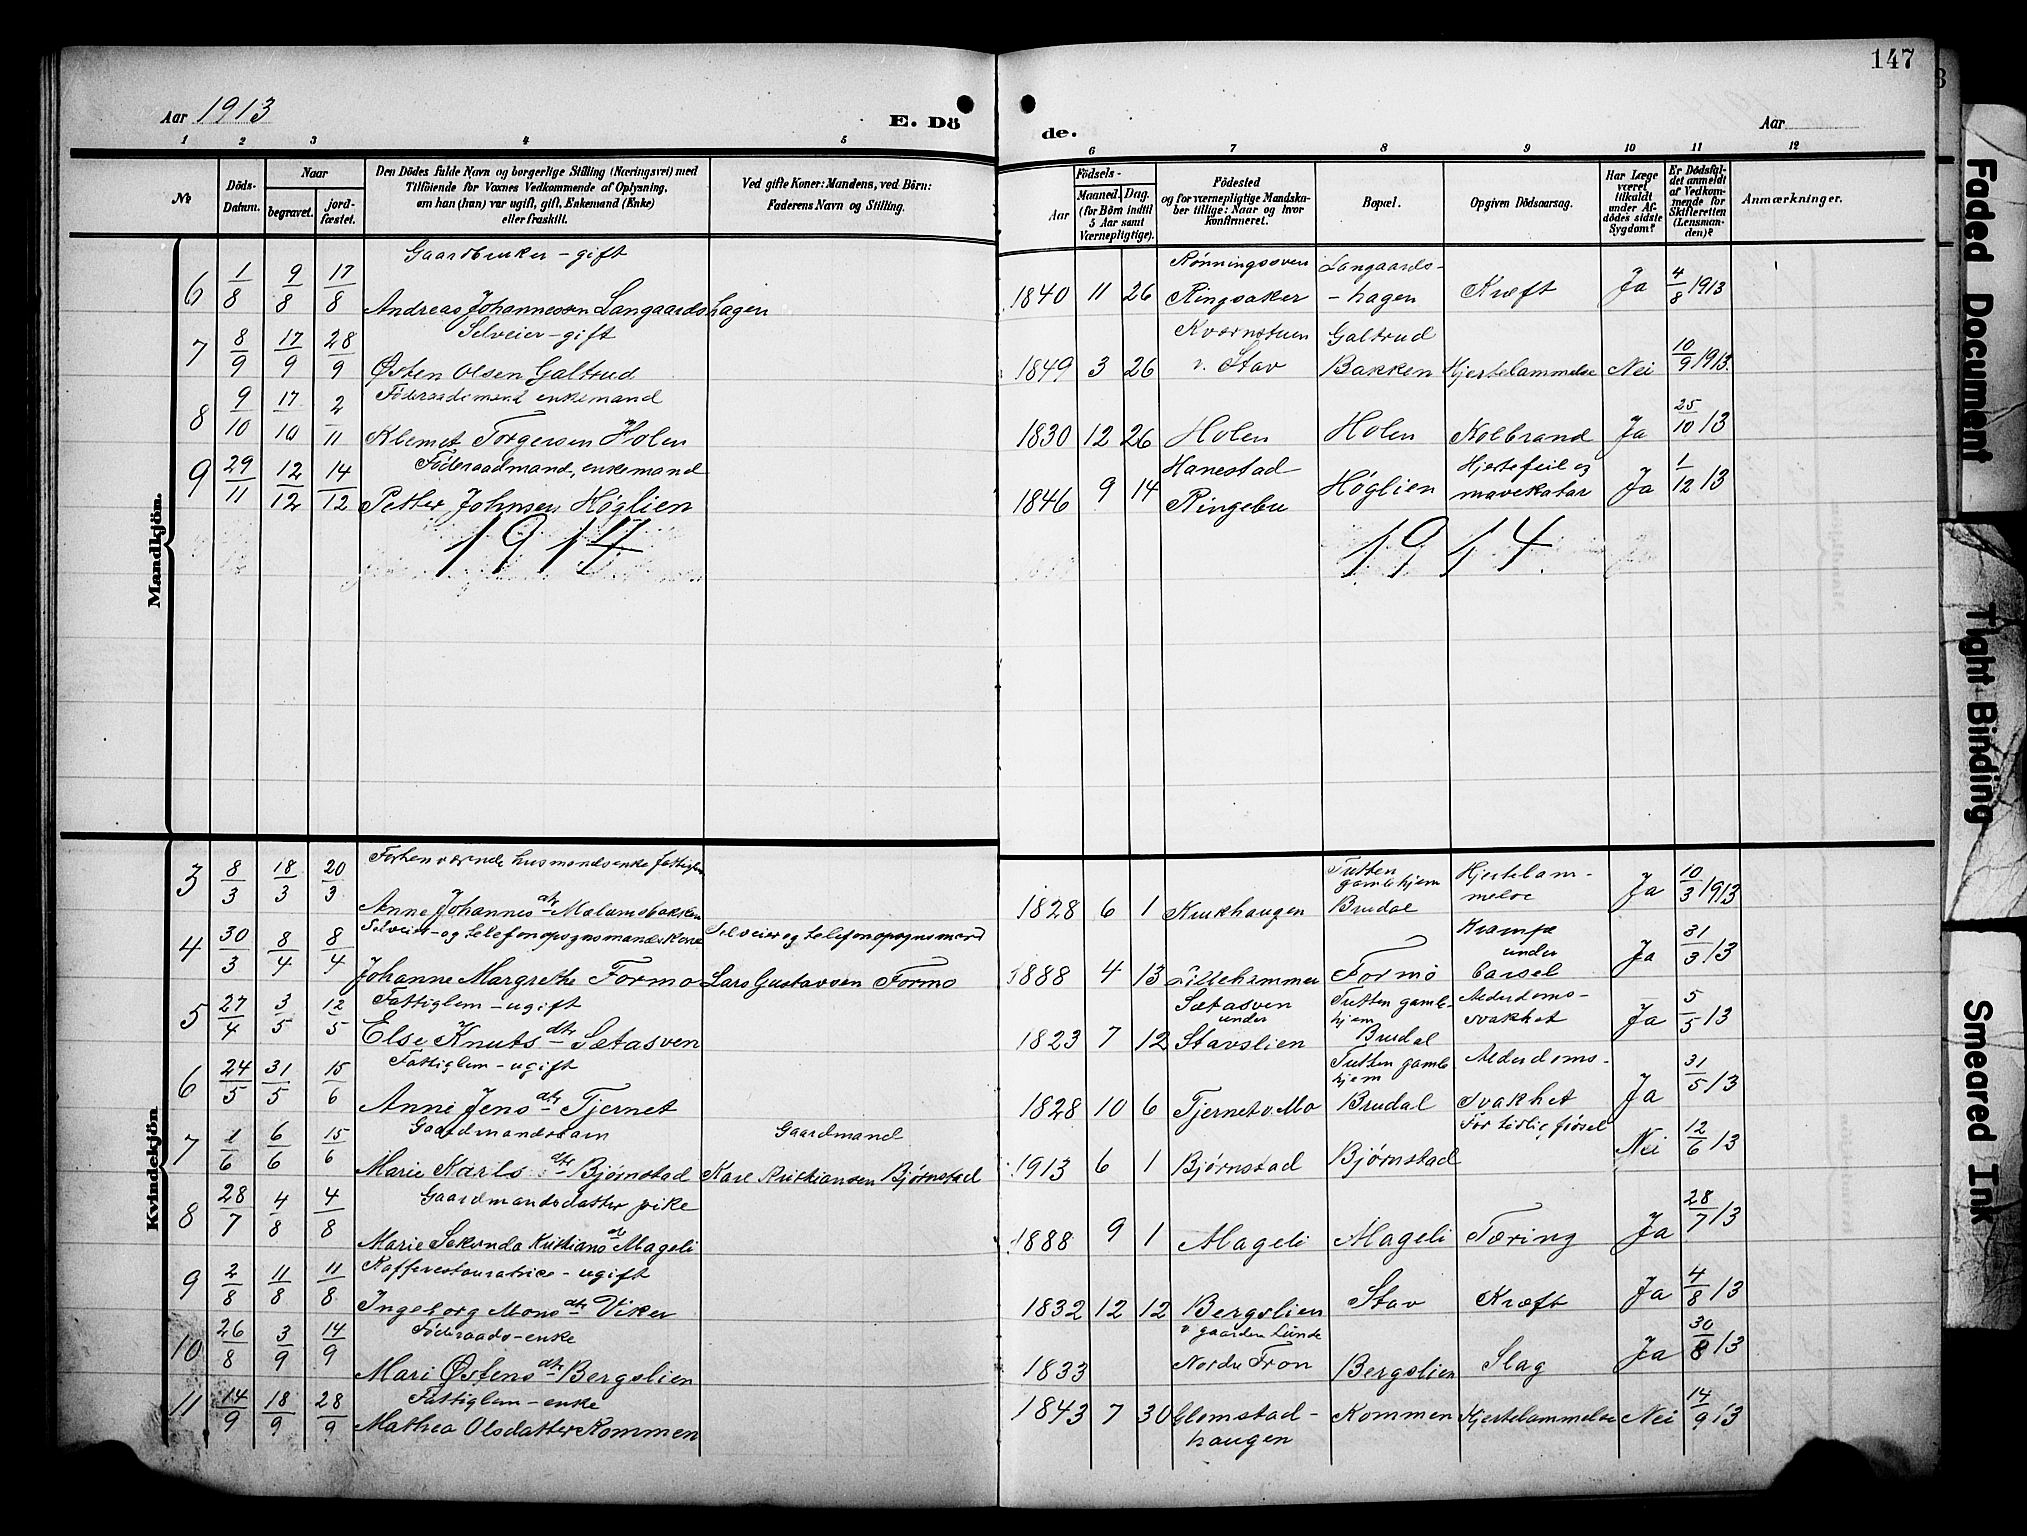 147
Aar 1913
E. Dö
de.
Aar
1 2 3 4 5 6 7 8 9 10 11 12
№
Döds-Datum.
Naar
begravet.
jord-fæstet.
Den Dödes fulde Navn og borgerlige Stilling (Næringsvei) med
Tilföiende for Voxnes Vedkommende af Oplysning,
om han (hun) var ugift, gift, Enkemand (Enke)
eller fraskilt.
Ved gifte Koner: Mandens, ved Börn:
Faderens Navn og Stilling.
Födsels-
Aar
Maaned. Dag.
(for Börn indtil
5 Aar samt
Værnepligtige).
Födested
og for værnepligtige Mandska-
ber tillige: Naar og hvor
konfirmeret.
Bopæl.
Opgiven Dödsaarsag.
Har Læge
været
tilkaldt
under Af-
dödes sidste
Sygdom?
Er Dödsfal-
det anmeldt
af Vedkom-
mende for
Skifteretten
(Lensman-
den)?
Anmærkninger.
Mandkjön.
Gaardbruker - gift Rønningssven Langaards-
6 1/8 9/8 17/8 Andreas Johannessen Langaardshagen 1840 11 26 Ringsaker -hagen Kræft Ja 4/8 1913
Selveier - gift Kvernstuen Galtrud
7 8/9 17/9 28/9 Østen Olsen Galtrud 1849 3 26 v. Stav Bakken Hjertelammelse Nei 10/9 1913
Føderaadsmand enkemand
8 9/10 17/10 2/11 Klemet Torgersen Holen 1830 12 26 Holen Holen Kolbrand Ja 25/10 13
Føderaadmand, enkemand Hanestad Hjertefeil og
9 29/11 12/12 14/12 Petter Johnsen Høglien 1846 9 14 Ringebu Høglien mavekatar Ja 1/12 13
1914 1914
Kvindekjön
Forhenværende husmandsenke fattiglem Tretten gamlehjem Hjertelam-
3 8/3 18/3 20/3 Anne Johannesdtr Malumsbakken 1828 6 1 Krukhaugen Brudal melse Ja 10/3 1913
Selveier- og telefonopsynsmands kone Selveier og telefonopsynsmand Krampe under
4 30/3 8/4 8/4 Johanne Margrethe Formo Lars Gustavsen Formo 1888 4 13 Lillehammer Formo barsel Ja 31/3 13
Fattiglem - ugift Sætasven under Tretten gamlehjem Alderdoms-
5 27/4 3/5 12/5 Else Knutsdtr Sætasven 1823 7 12 Stavslien Brudal svakhet Ja 5/5 13
Fattiglem - ugift Tretten gamlehjem Alderdoms-
6 24/5 31/5 15/6 Anne Jensdtr Tjernet 1828 10 6 Tjernet v. Mo Brudal svakhet Ja 31/5 13
Gaardmandsbarn Gaardmand For tidlig fødsel
7 1/6 6/6 15/6 Marie Karlsdtr Bjørnstad Karl Kristiansen Bjørnstad 1913 6 1 Bjørnstad Bjørnstad Nei 12/6 13
Gaardmandsdatter pike
8 28/7 4/8 4/8 Marie Sekunda Kristiansd Mageli 1888 9 1 Mageli Mageli Tæring Ja 28/7 13
Kafferestauratrice - ugift
9 2/8 11/8 11/8 Ingeborg Monsdtr Viker 1832 12 12 Bergslien Stav Kræft Ja 4/8 13
Føderaads-enke v gaarden Lunde
10 26/8 3/9 14/9 Mari Østensdtr Bergslien 1833 Nordre Fron Bergslien Slag Ja 30/8 13
Fattiglem - enke
11 14/9 18/9 28/9 Mathea Olsdatter Kommen 1843 7 30 Glomstad-haugen Kommen Hjertelammelse Nei 14/9 13
Faded Document
Tight Binding
Smeared Ink